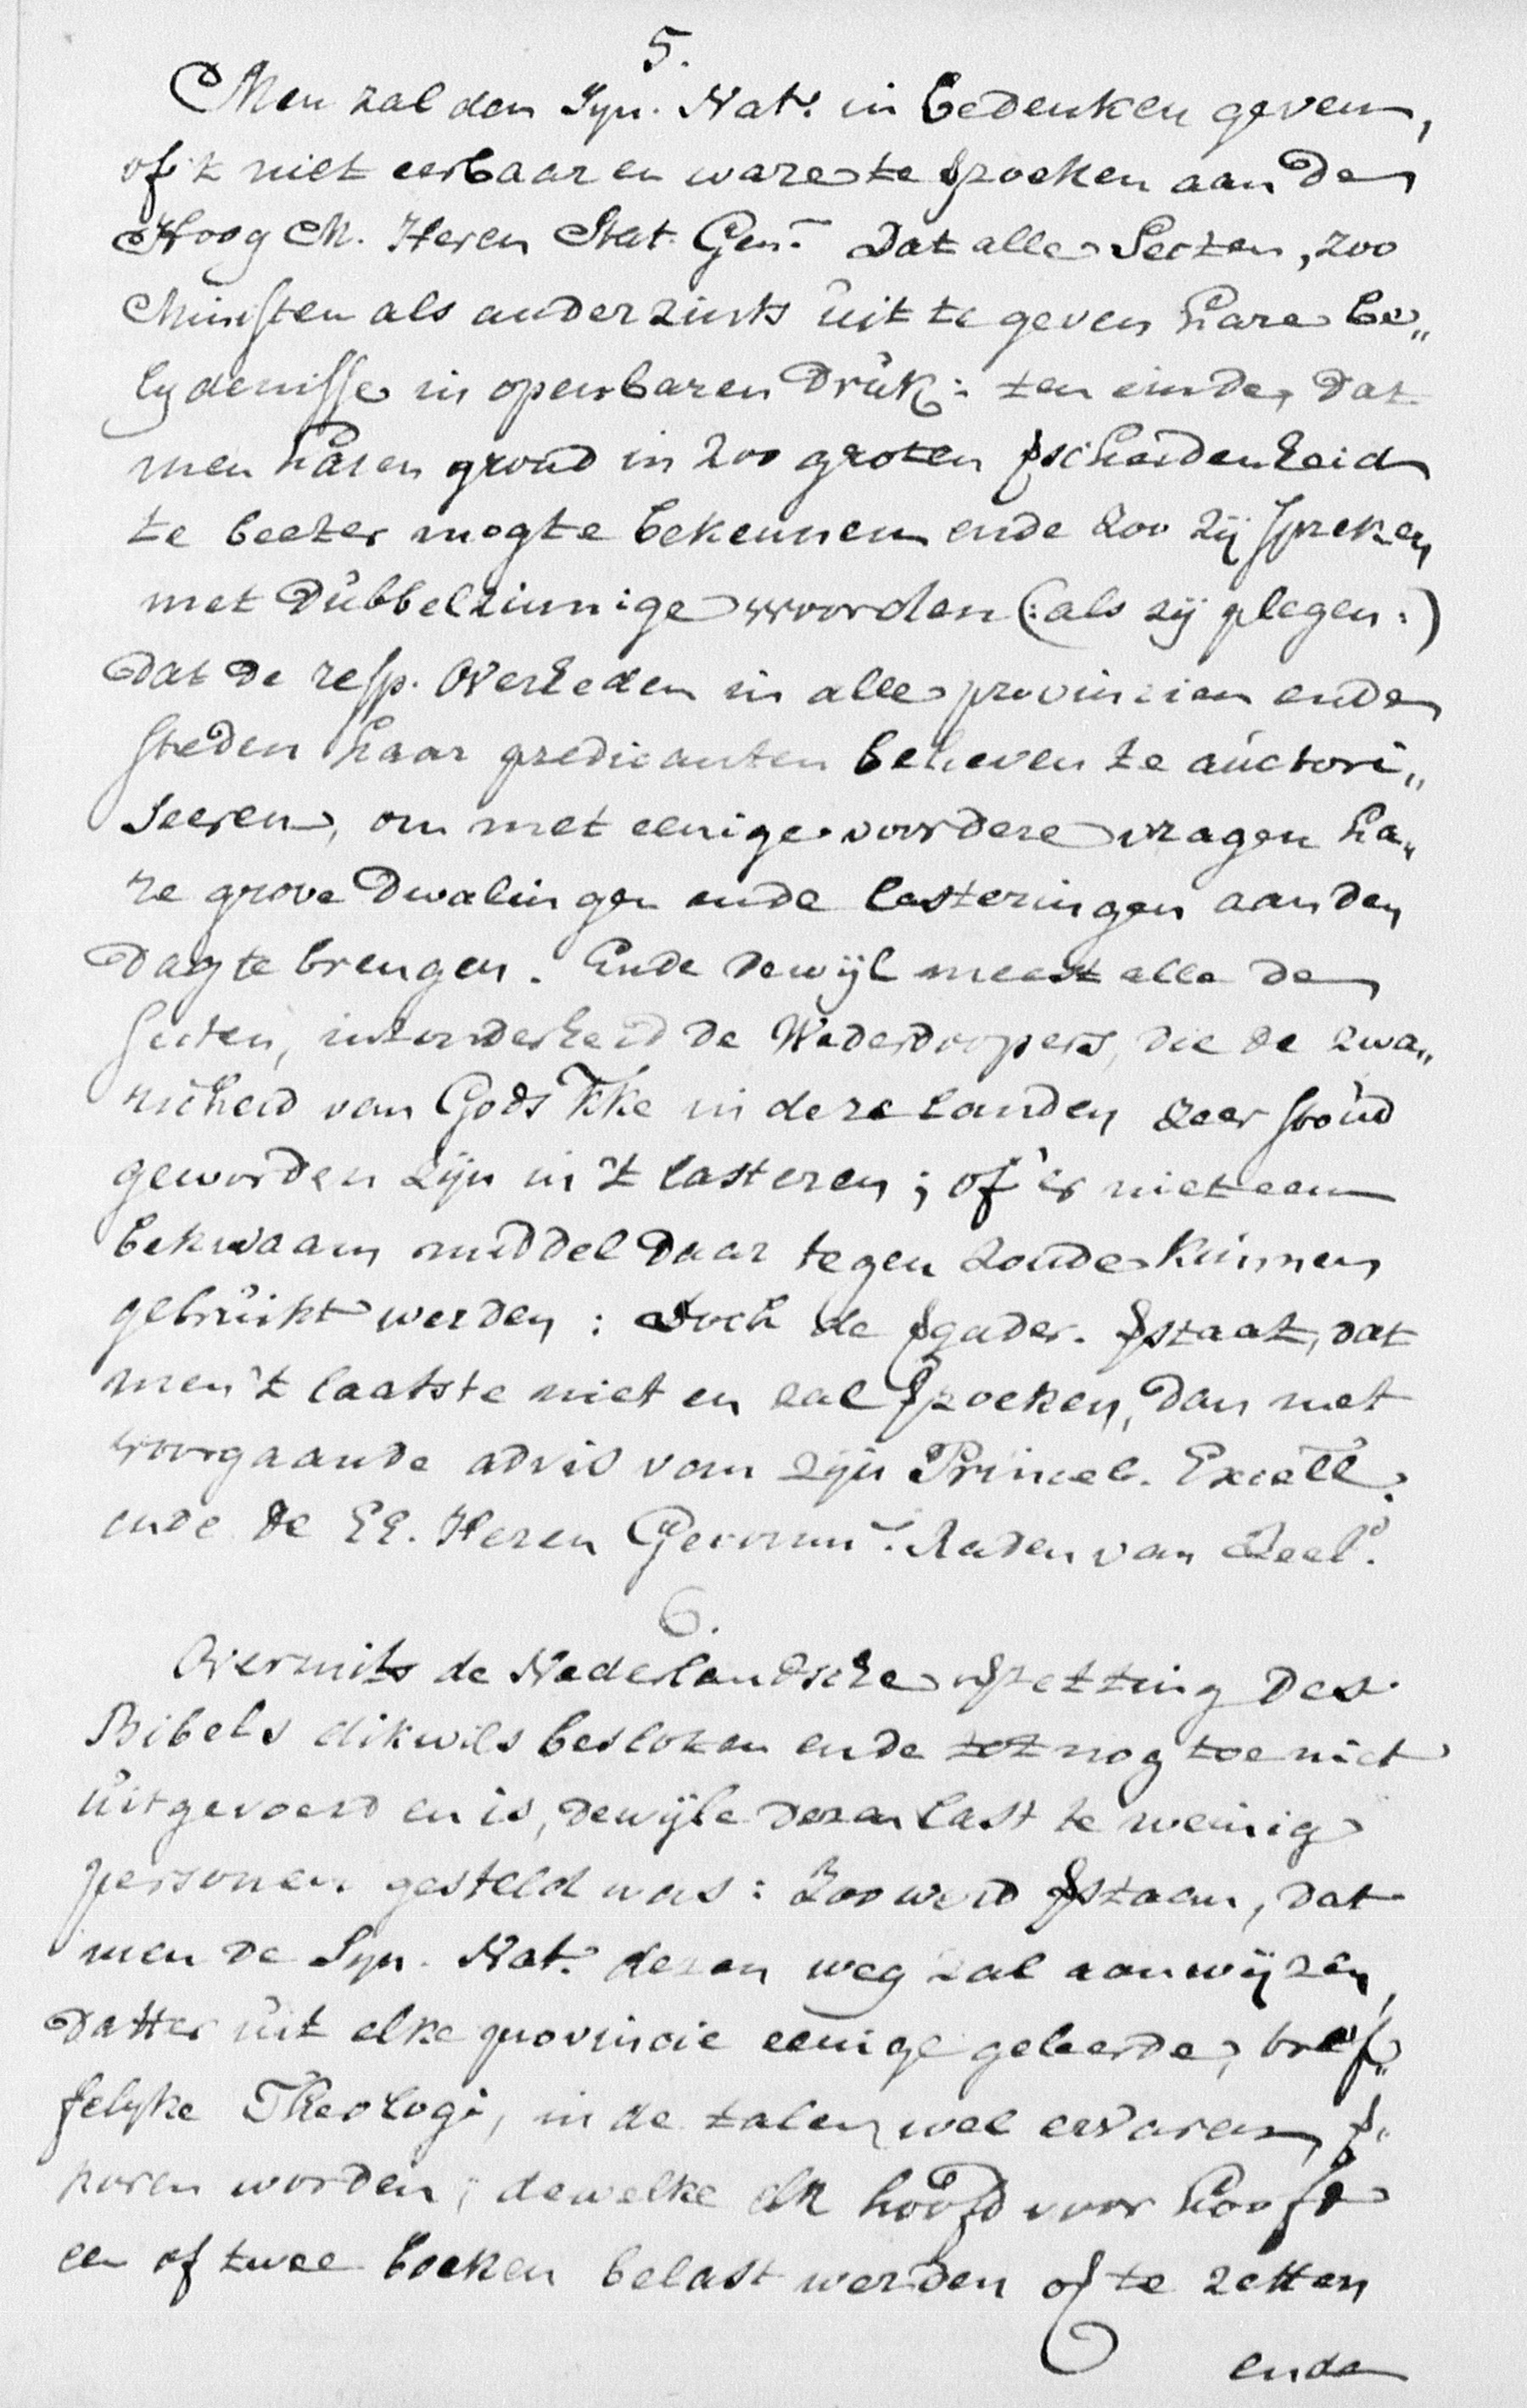 5.
Men zal den Syn. Nat. in bedenken geven,
of 't niet eerbaar en ware te ꝟzoeken aan de
Hoog M. Heren Stat. Gen. Dat alle Secten, zoo
Ministen als anderzints uit te geven hare be„
lydenisse in openbaren Druk: ten einde, dat
men haren grond in zoo groten ꝟscheidenheid
te beeter mogte bekennen ende zoo zij spreken
met Dubbelzinnige woorden (: als zij plegen :)
Dat de resp. Overheden in alle provincien ende
steden haar predicanten believen te auctori„
seeren, om met eenige voordere vragen ha„
re grove Dwalingen ende lasteringen aan den
Dag te brengen. Ende dewijl meest alle de
secten, inzonderheid de Wederdoopers, die de zwa„
richeid van Gods Kke in deze landen zeer stout
geworden zijn in 't lasteren; of 'er niet een
bekwaam middel daar tegen zoude kunnen
gebruikt werden: Doch de ꝟgader. ꝟstaat, dat
men 't laatste niet en zal ꝟzoeken, dan met
voorgaande advis van zijn Princel. Excell.
ende de EE. Heren Gecomm. Raden van Zeel.
6.
Overmits de Nederlandsche ꝟzetting des
Bibels dikwils besloten ende tot nog toe niet
uitgevoerd en is, dewijle dezen last te weinig
personen gesteld was: Zoo werd ꝟstaen, dat
men de Syn. Nat. dezen weg zal aanwijzen,
datter uit elke provincie eenige geleerde, tref„
felyke Theologi, in de talen wel ervaren, ꝟ„
koren worden; dewelke elk hoofd voor hoofd
een of twee boeken belast werden o͠ꝟ te zetten
ende